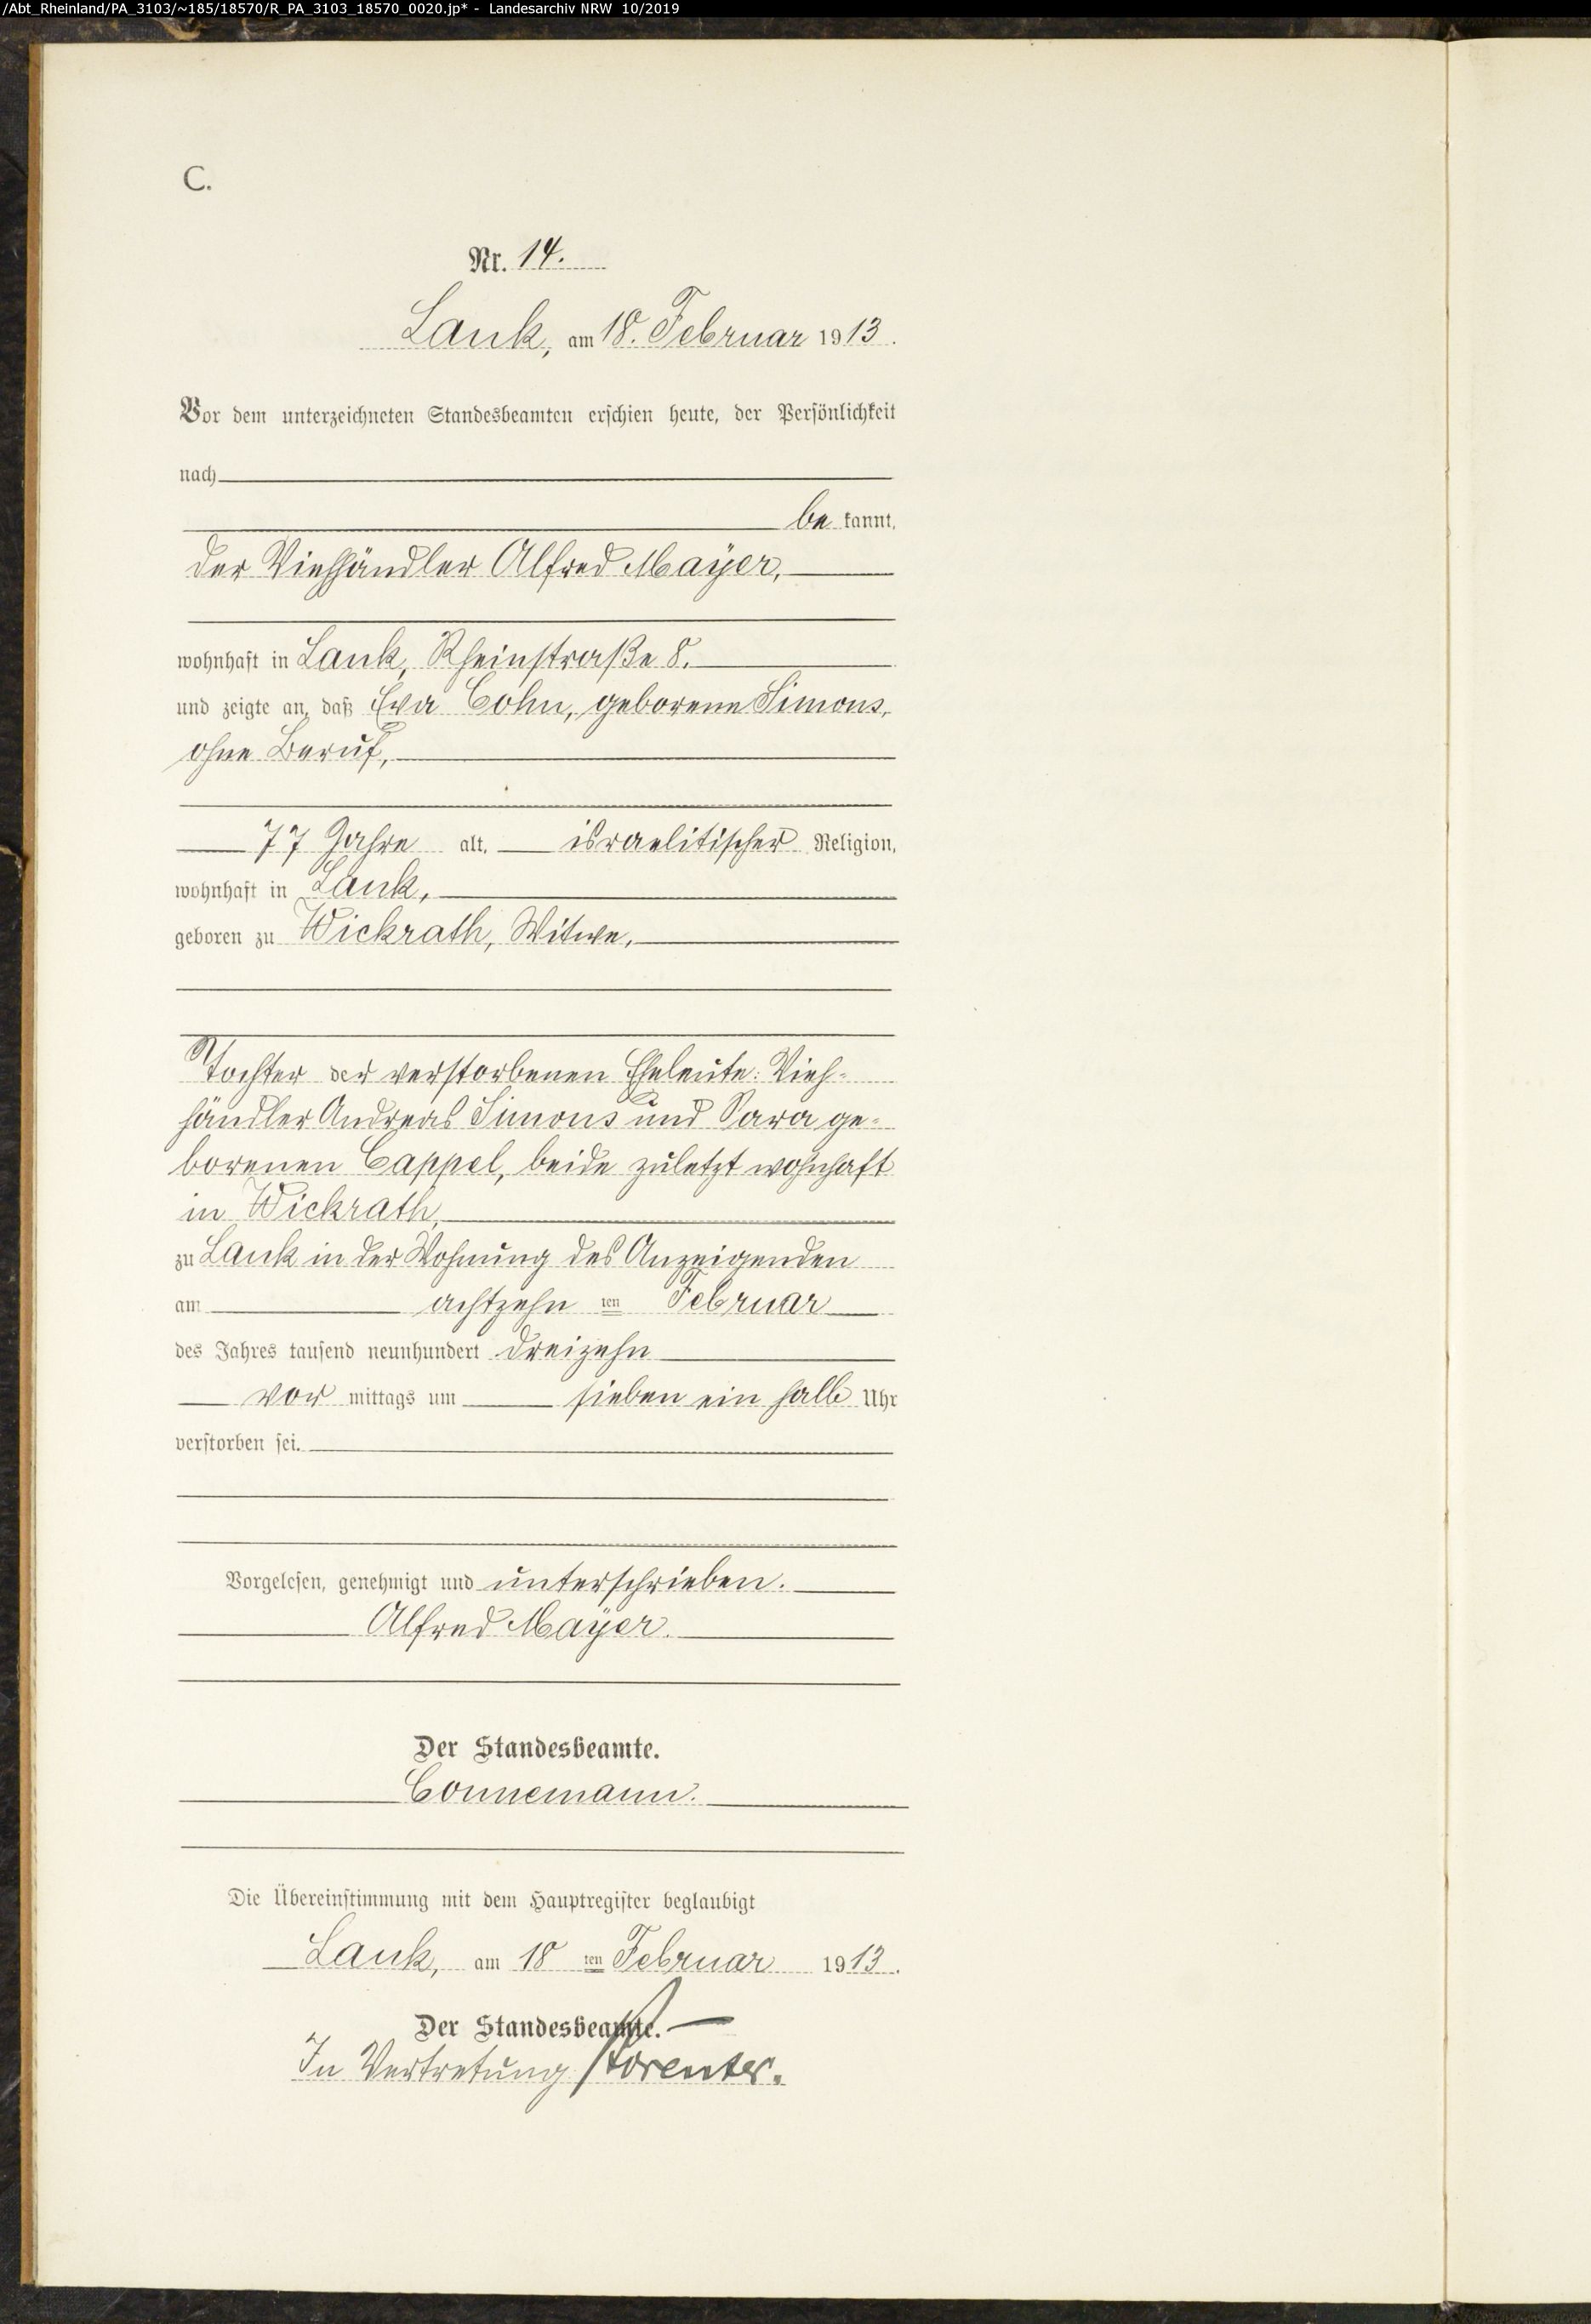 /Abt_Rheinland/PA_3103/~185/18570/R_PA_3103_18570_0020.jp* - Landesarchiv NRW 10/2019
C.
Nr. 14.
Lank, am 18. Februar 1913.
Vor dem unterzeichneten Standesbeamten erschien heute, der Persönlichkeit
nach
be kannt,
der Viehhändler Alfred Mayer,
wohnhaft in Lank, Rheinstraße 8.
und zeigte an, daß Eva Cohn, geborene Simons,
ohne Beruf,
77 Jahre alt, israelitischer Religion,
wohnhaft in Lank,
geboren zu Wickrath, Witwe,
Tochter der verstorbenen Eheleute: Vieh-
händler Andreas Simons und Sara ge-
borenen Cappel, beide zuletzt wohnhaft
in Wickrath,
zu Lank in der Wohnung des Anzeigenden
am achtzehn ten Februar
des Jahres tausend neunhundert dreizehn
vor mittags um sieben ein halb Uhr
verstorben sei.
Vorgelesen, genehmigt und unterschrieben.
Alfred Mayer.
Der Standesbeamte.
Connemann.
Die Übereinstimmung mit dem Hauptregister beglaubigt
Lank, am 18 ten Februar 1913.
Der Standesbeamte.
In Vertretung